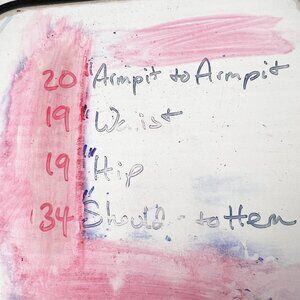 20" Armpit to Armpit
19" Waist
19" Hip
34" Should - to Hem